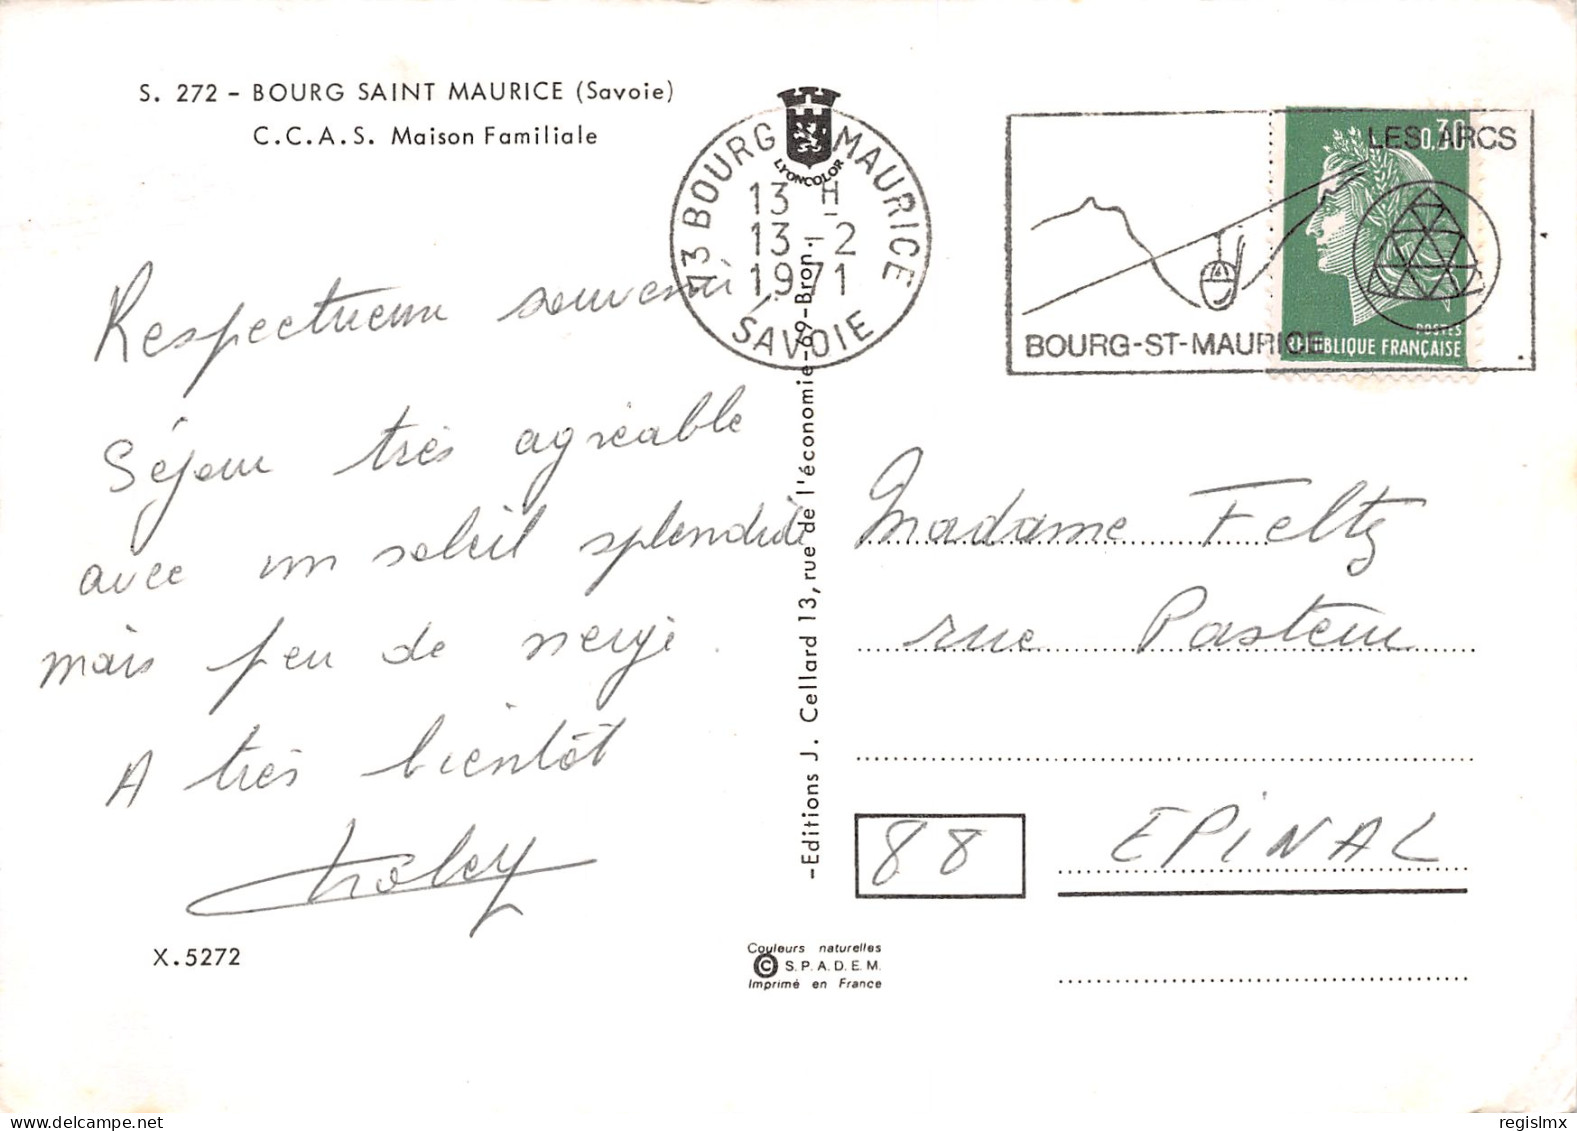 S. 272 - BOURG SAINT MAURICE (Savoie)
C.C.A.S. Maison Familiale
LYONCOLOR
73 BOURG MAURICE
13 H
13-2
1971
SAVOIE
LES ARCS
BOURG-ST-MAURICE
0,30
POSTES
REPUBLIQUE FRANÇAISE
Respectueux souvenir
Séjour très agréable
avec un soleil splendide
mais peu de neige.
A très bientôt
-Editions J. Cellard 13, rue de l'économie-69-Bron-
Madame Feltz
rue Pasteur
88 EPINAL
X.5272
Couleurs naturelles
© S.P.A.D.E.M.
Imprimé en France
regislmx